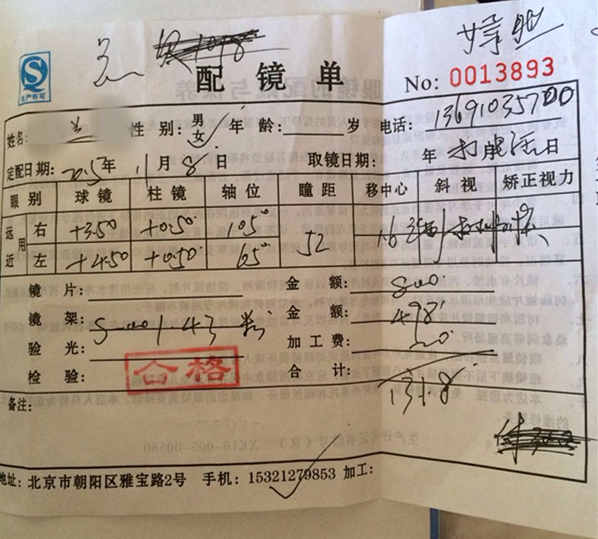 生产许可
配镜单
No: 0013893
姓名: 性别: 男 女 年龄: 岁 电话: 13691035700
定配日期: 2015年 11月 8日 取镜日期: 年 打电话 日
眼别 球镜 柱镜 轴位 瞳距 移中心 斜视 矫正视力
远 用 右 +3.50 +0.50 105° 52
近 左 +4.50 +0.50 65°
镜片: 金额: 800
镜架: 金额: 498
验光: 加工费: 20
检验: 合格 合计: 1318
备注:
地址: 北京市朝阳区雅宝路2号 手机: 15321279853 加工: